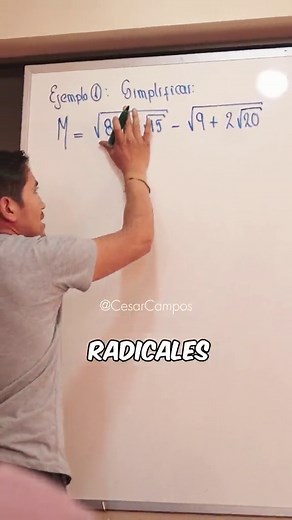 Ejemplo ①: Simplificar:
M = √8 √15 − √9 + 2√20
@CesarCampos
RADICALES